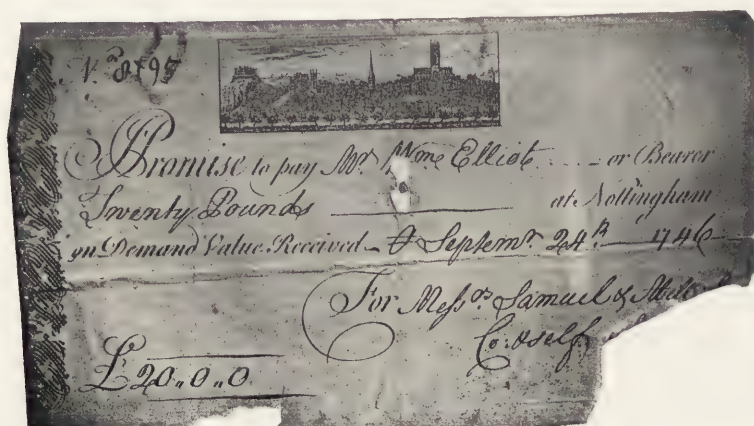 No 8795
I Promise to pay Mr Wm Elliot or Bearer
Twenty Pounds at Nottingham
on Demand Value Received Septemr 24th 1746
For Messrs Samuel &
Co: & self
£20„0„0